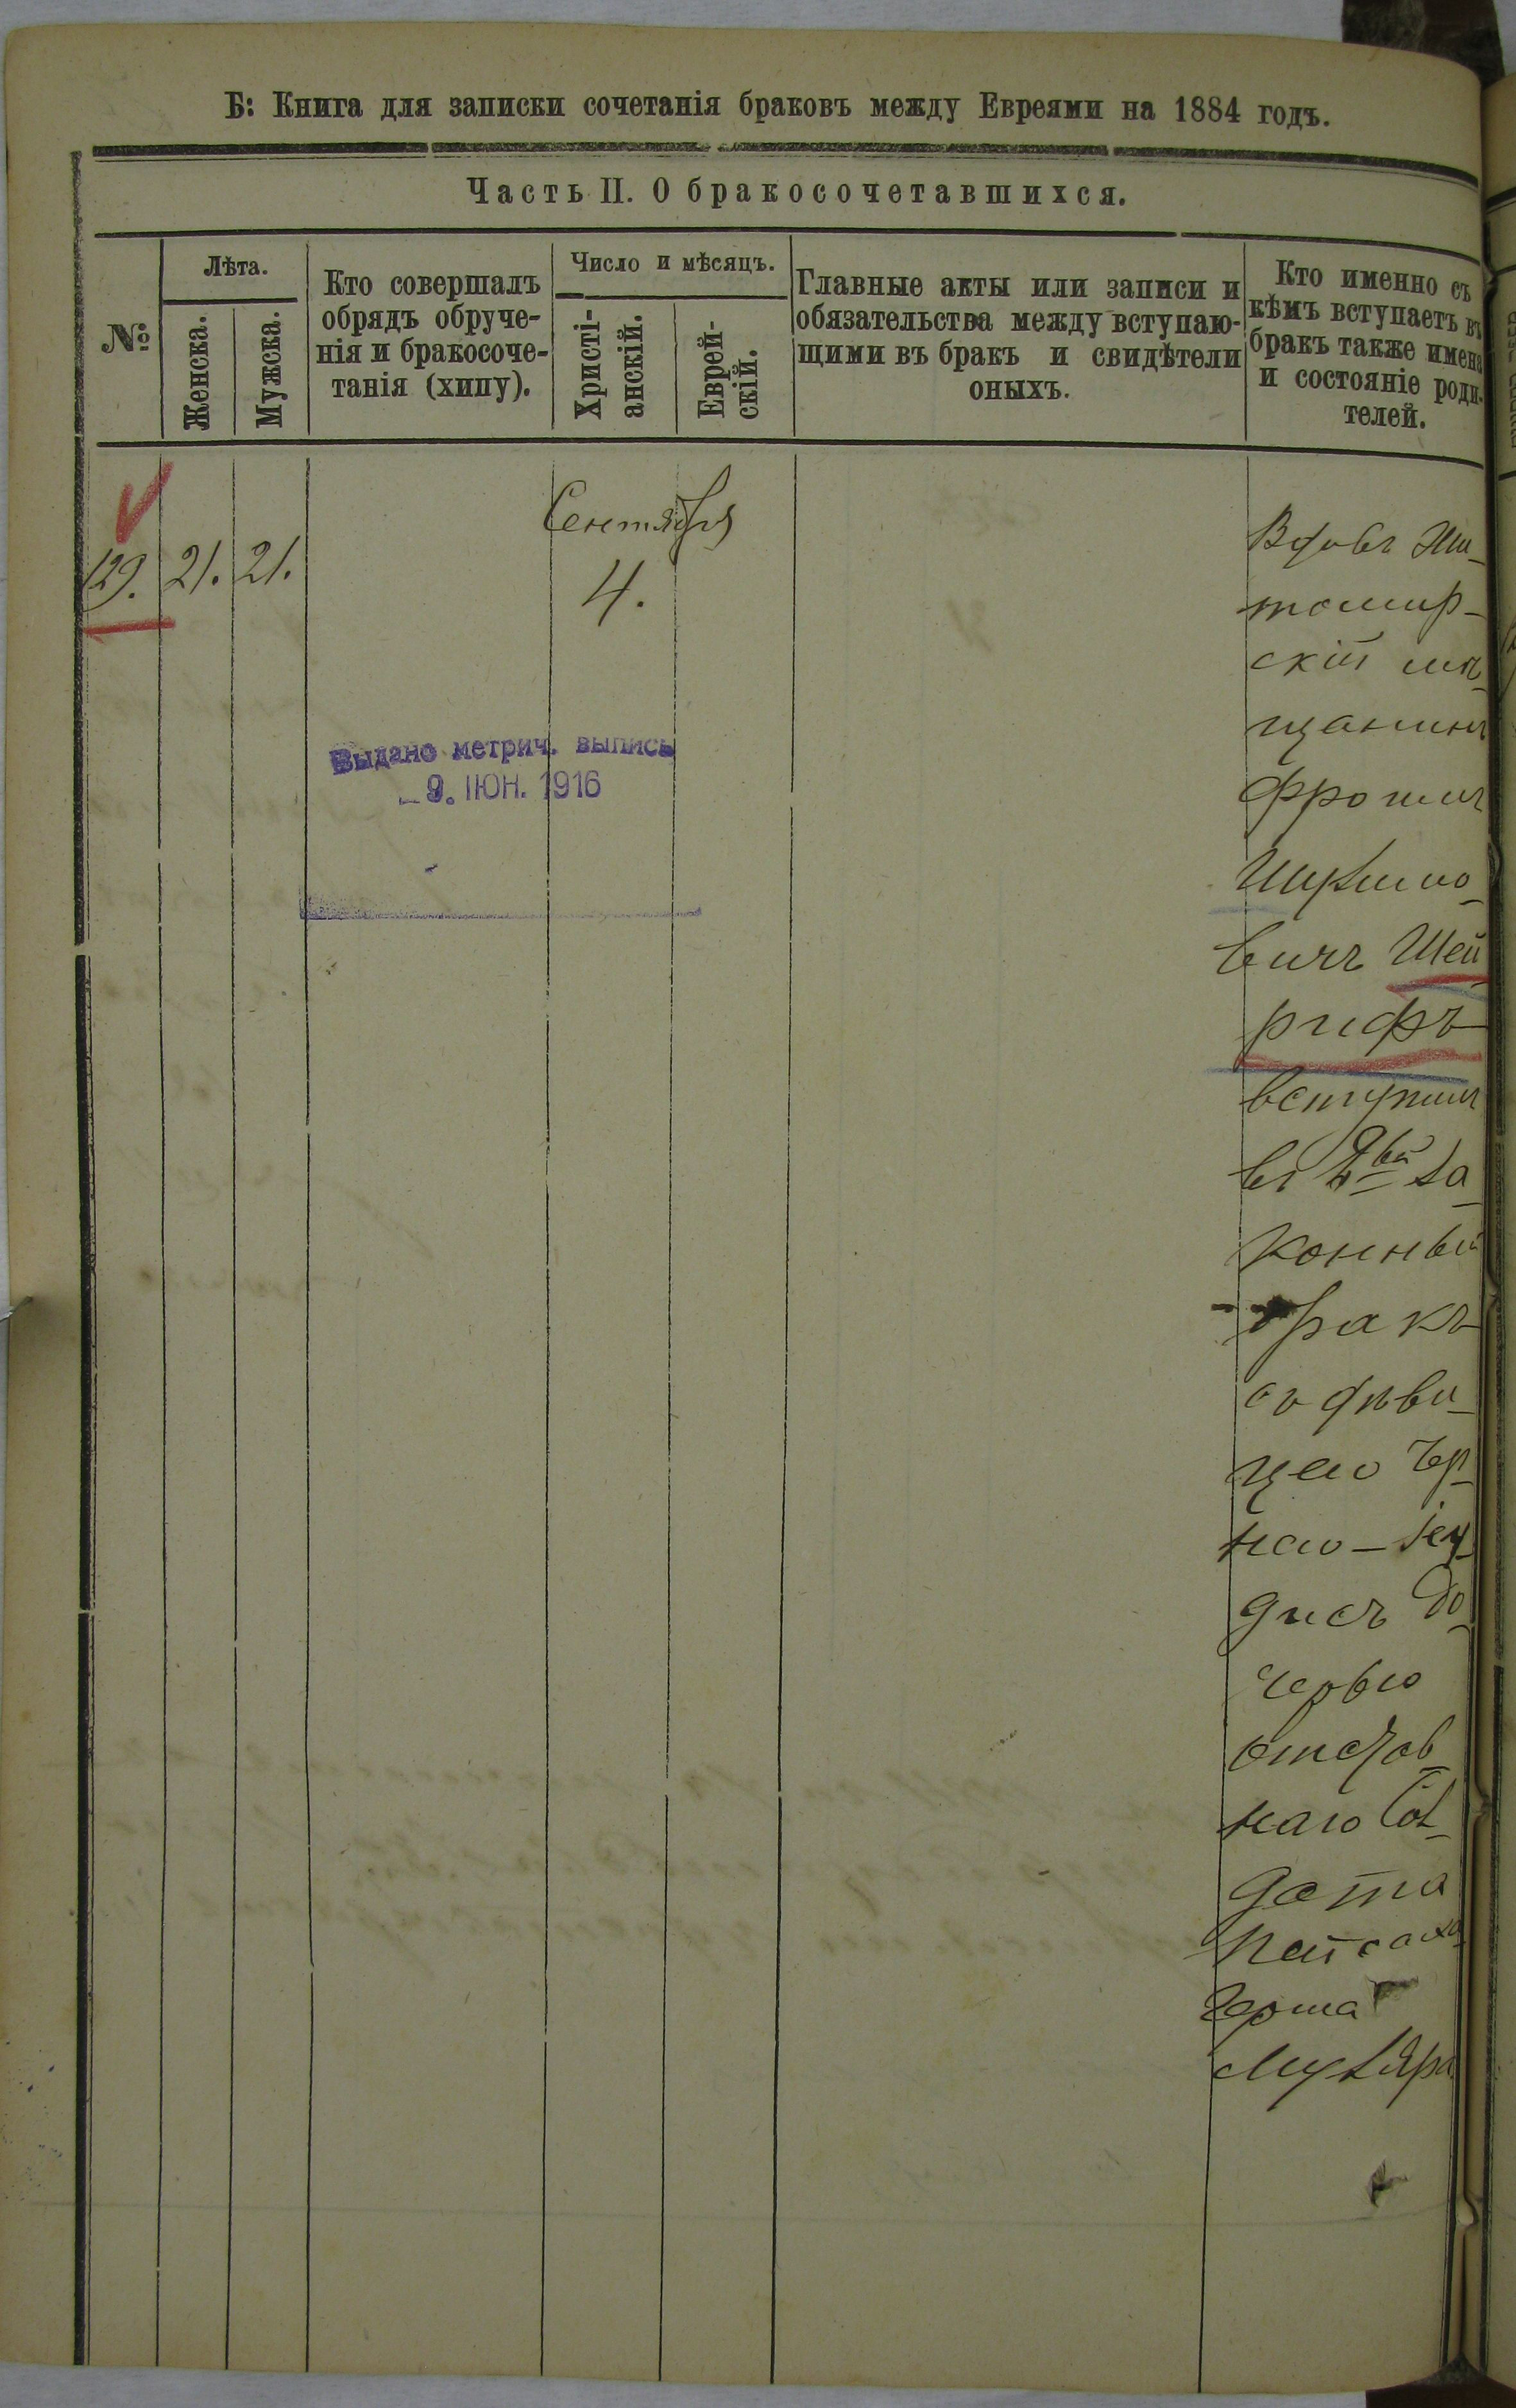 Б: Книга для записки сочетанія браковъ между Евреями на 1884 годъ.
Часть II. О бракосочетавшихся.
№
Лѣта.
Женска.
Мужска.
Кто совершалъ
обрядъ обруче-
нія и бракосоче-
танія (хипу).
Число и мѣсяцъ.
Христі-
анскій.
Еврей-
скій.
Главные акты или записи и
обязательства между вступаю-
щими въ бракъ и свидѣтели
оныхъ.
Кто именно съ
кѣмъ вступаетъ въ
бракъ также имена
и состояніе роди-
телей.
129. 21. 21.
Сентября
4.
Выдано метрич. выпись
9. ІЮН. 1916
Вдовъ Жи-
томир-
скій мѣ-
щанинъ
Фроимъ
вичъ Шей
рифъ
вступилъ
въ за-
конный
бракъ
съ дѣви-
цею Чер-
ною-Іеу-
дисъ до-
черью
отстав-
наго Сол-
дата
Пейсаха
Герша